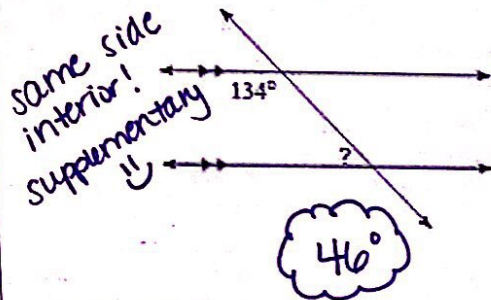 same side
interior!
supplementary
134°
?
46°